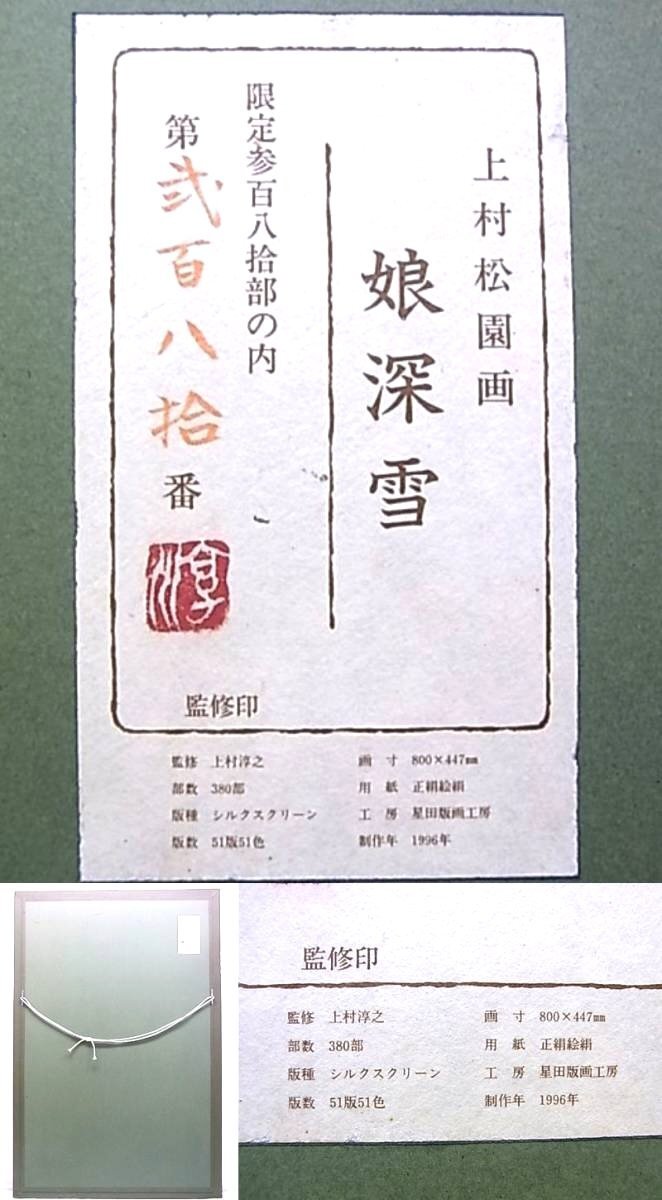 上村松園画
娘深雪
限定参百八拾部の内
第弐百八拾番
淳
監修印
監修 上村淳之
部数 380部
版種 シルクスクリーン
版数 51版51色
画寸 800×447㎜
用紙 正絹絵絹
工房 星田版画工房
制作年 1996年
監修印
監修 上村淳之
部数 380部
版種 シルクスクリーン
版数 51版51色
画寸 800×447㎜
用紙 正絹絵絹
工房 星田版画工房
制作年 1996年